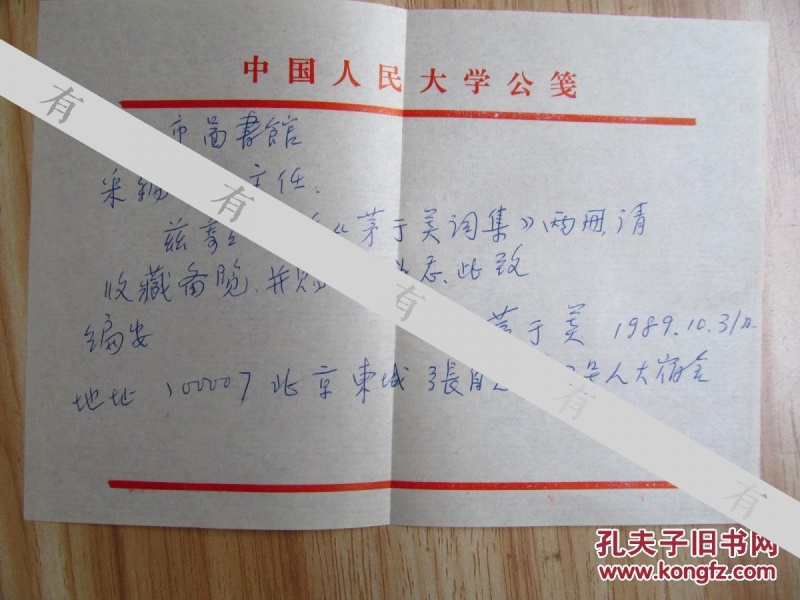 中国人民大学公笺
市啚書館
采编 主任.
兹寄 《茅于美词集》两册,请
收藏备览.并 为念.此致
编安
茅于美 1989.10.31/日.
地址 100007 北京東城 張自 号人大宿舍
有
有
有
有
有
孔夫子旧书网
www.kongfz.com